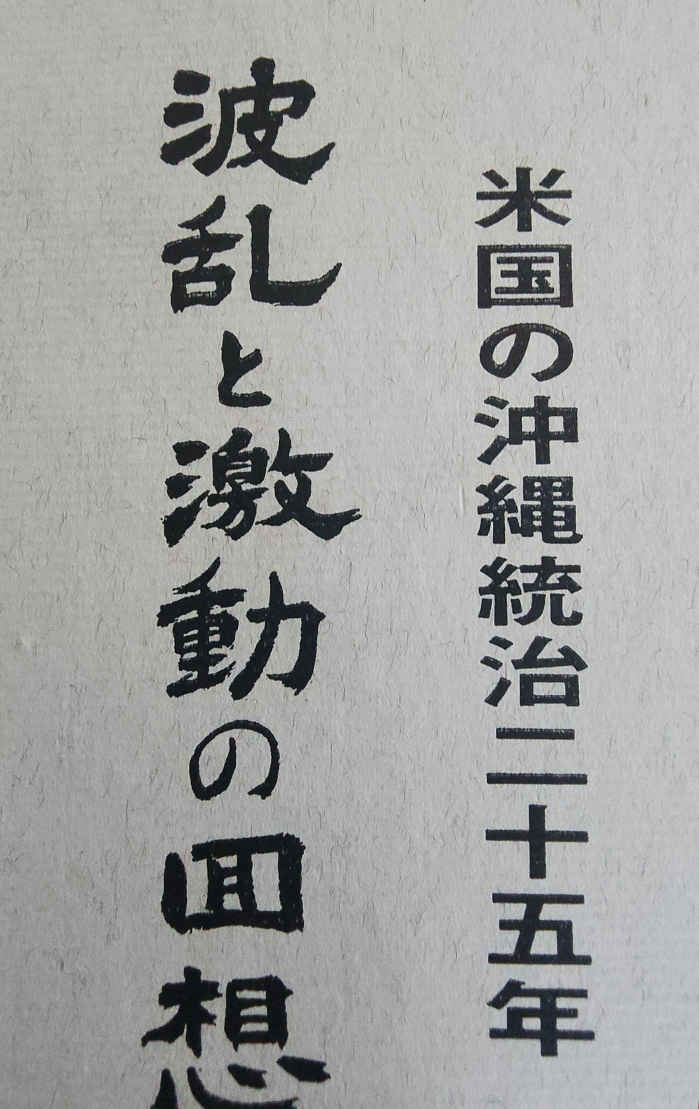 米国の沖縄統治二十五年
波乱と激動の回想